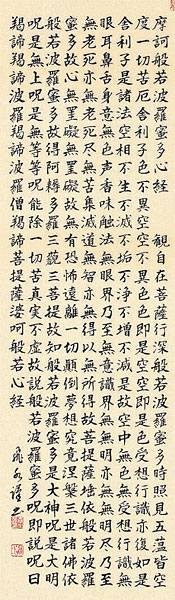 摩訶般若波羅蜜多心経 觀自在菩薩行深般若波羅蜜多時照見五蘊皆空
度一切苦厄舎利子色不異空空不異色色即是空空即是色受想行識亦復如是
舎利子是諸法空相不生不滅不垢不浄不増不減是故空中無色無受想行識無
眼耳鼻舌身意無色声香味触法無眼界乃至無意識界無無明亦無無明尽乃至
無老死亦無老死尽無苦集滅道無智亦無得以無所得故菩提薩埵依般若波羅
蜜多故心無罣礙無罣礙故無有恐怖遠離一切顛倒夢想究竟涅槃三世諸佛依
般若波羅蜜多故得阿耨多羅三藐三菩提故知般若波羅蜜多是大神呪是大明
呪是無上呪是無等等呪能除一切苦真実不虚故説般若波羅蜜多呪即説呪曰
羯諦羯諦波羅羯諦波羅僧羯諦菩提薩婆呵般若心経